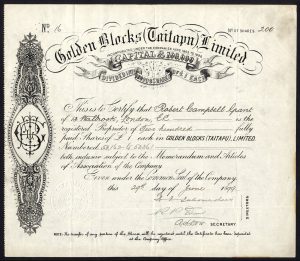 No. 16
No. OF SHARES 200
Golden Blocks (Taitapu) Limited.
INCORPORATED UNDER THE COMPANIES ACTS
CAPITAL £
DIVIDED INTO SHARES OF £1 EACH
This is to Certify that Robert Campbell Grant
of Walbrook, London, E.C. is the
registered Proprietor of Two hundred fully
paid Shares of £1 each in GOLDEN BLOCKS (TAITAPU), LIMITED,
Numbered to
both inclusive subject to the Memorandum and Articles
of Association of the Company.
Given under the Common Seal of the Company
this 29th day of June
DIRECTORS
SECRETARY
NOTE: No transfer of any portion of the Shares will be registered until the Certificate has been deposited
at the Company's Office.